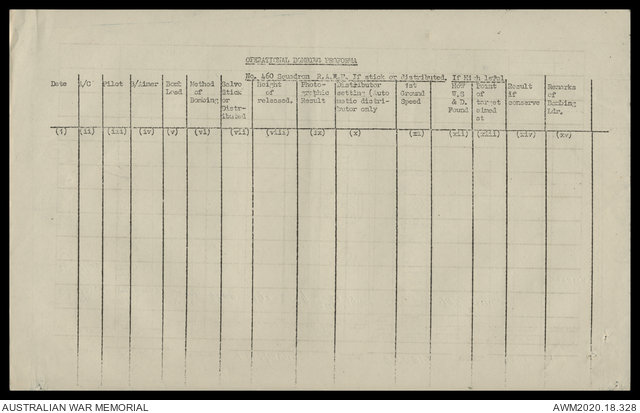 OPERATIONAL BOMBING PROFORMA
No. 460 Squadron R.A.A.F. If stick or distributed. If High level
Date A/C Pilot B/Aimer Bomb Method Salvo Height Photo- Distributor 1st How Point Result Remarks
Load of Stick of graphic setting (Auto Ground W.S of if of
Bombing or released. Result matic distri- Speed & D. target conserve Bombing
Distr- butor only Found aimed Ldr.
ibuted at
(i) (ii) (iii) (iv) (v) (vi) (vii) (viii) (ix) (x) (xi) (xii) (xiii) (xiv) (xv)
AUSTRALIAN WAR MEMORIAL AWM2020.18.328